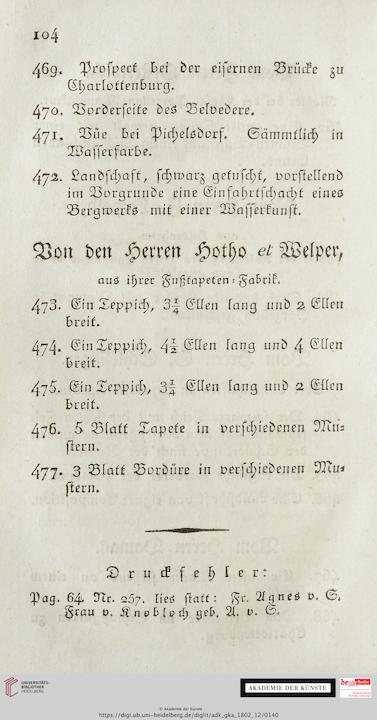 104
469. Proſpect bei der eiſernen Brücke zu
Charlottenburg.
470. Vorderſeite des Belvedere.
471. Vüe bei Pichelsdorf. Sämmtlich in
Waſſerfarbe.
472. Landſchaft, ſchwarz getuſcht, vorſtellend
im Vorgrunde eine Einfahrtſchacht eines
Bergwerks mit einer Waſſerkunſt.
Von den Herren Hotho et Welper,
aus ihrer Fußtapeten-Fabrik.
473. Ein Teppich, 3¼ Ellen lang und 2 Ellen
breit.
474. Ein Teppich, 4½ Ellen lang und 4 Ellen
breit.
475. Ein Teppich, 3¼ Ellen lang und 2 Ellen
breit.
476. 5 Blatt Tapete in verſchiedenen Mu-
ſtern.
477. 3 Blatt Bordüre in verſchiedenen Mu-
ſtern.
Druckfehler:
Pag. 64. Nr. 257. lies ſtatt: Fr. Agnes v. S.
Frau v. Knobloch geb. A. v. S.
UNIVERSITÄTS-
BIBLIOTHEK
HEIDELBERG
AKADEMIE DER KÜNSTE
be Berlin
© Akademie der Künste
https://digi.ub.uni-heidelberg.de/diglit/adk_gka_1802_12/0140